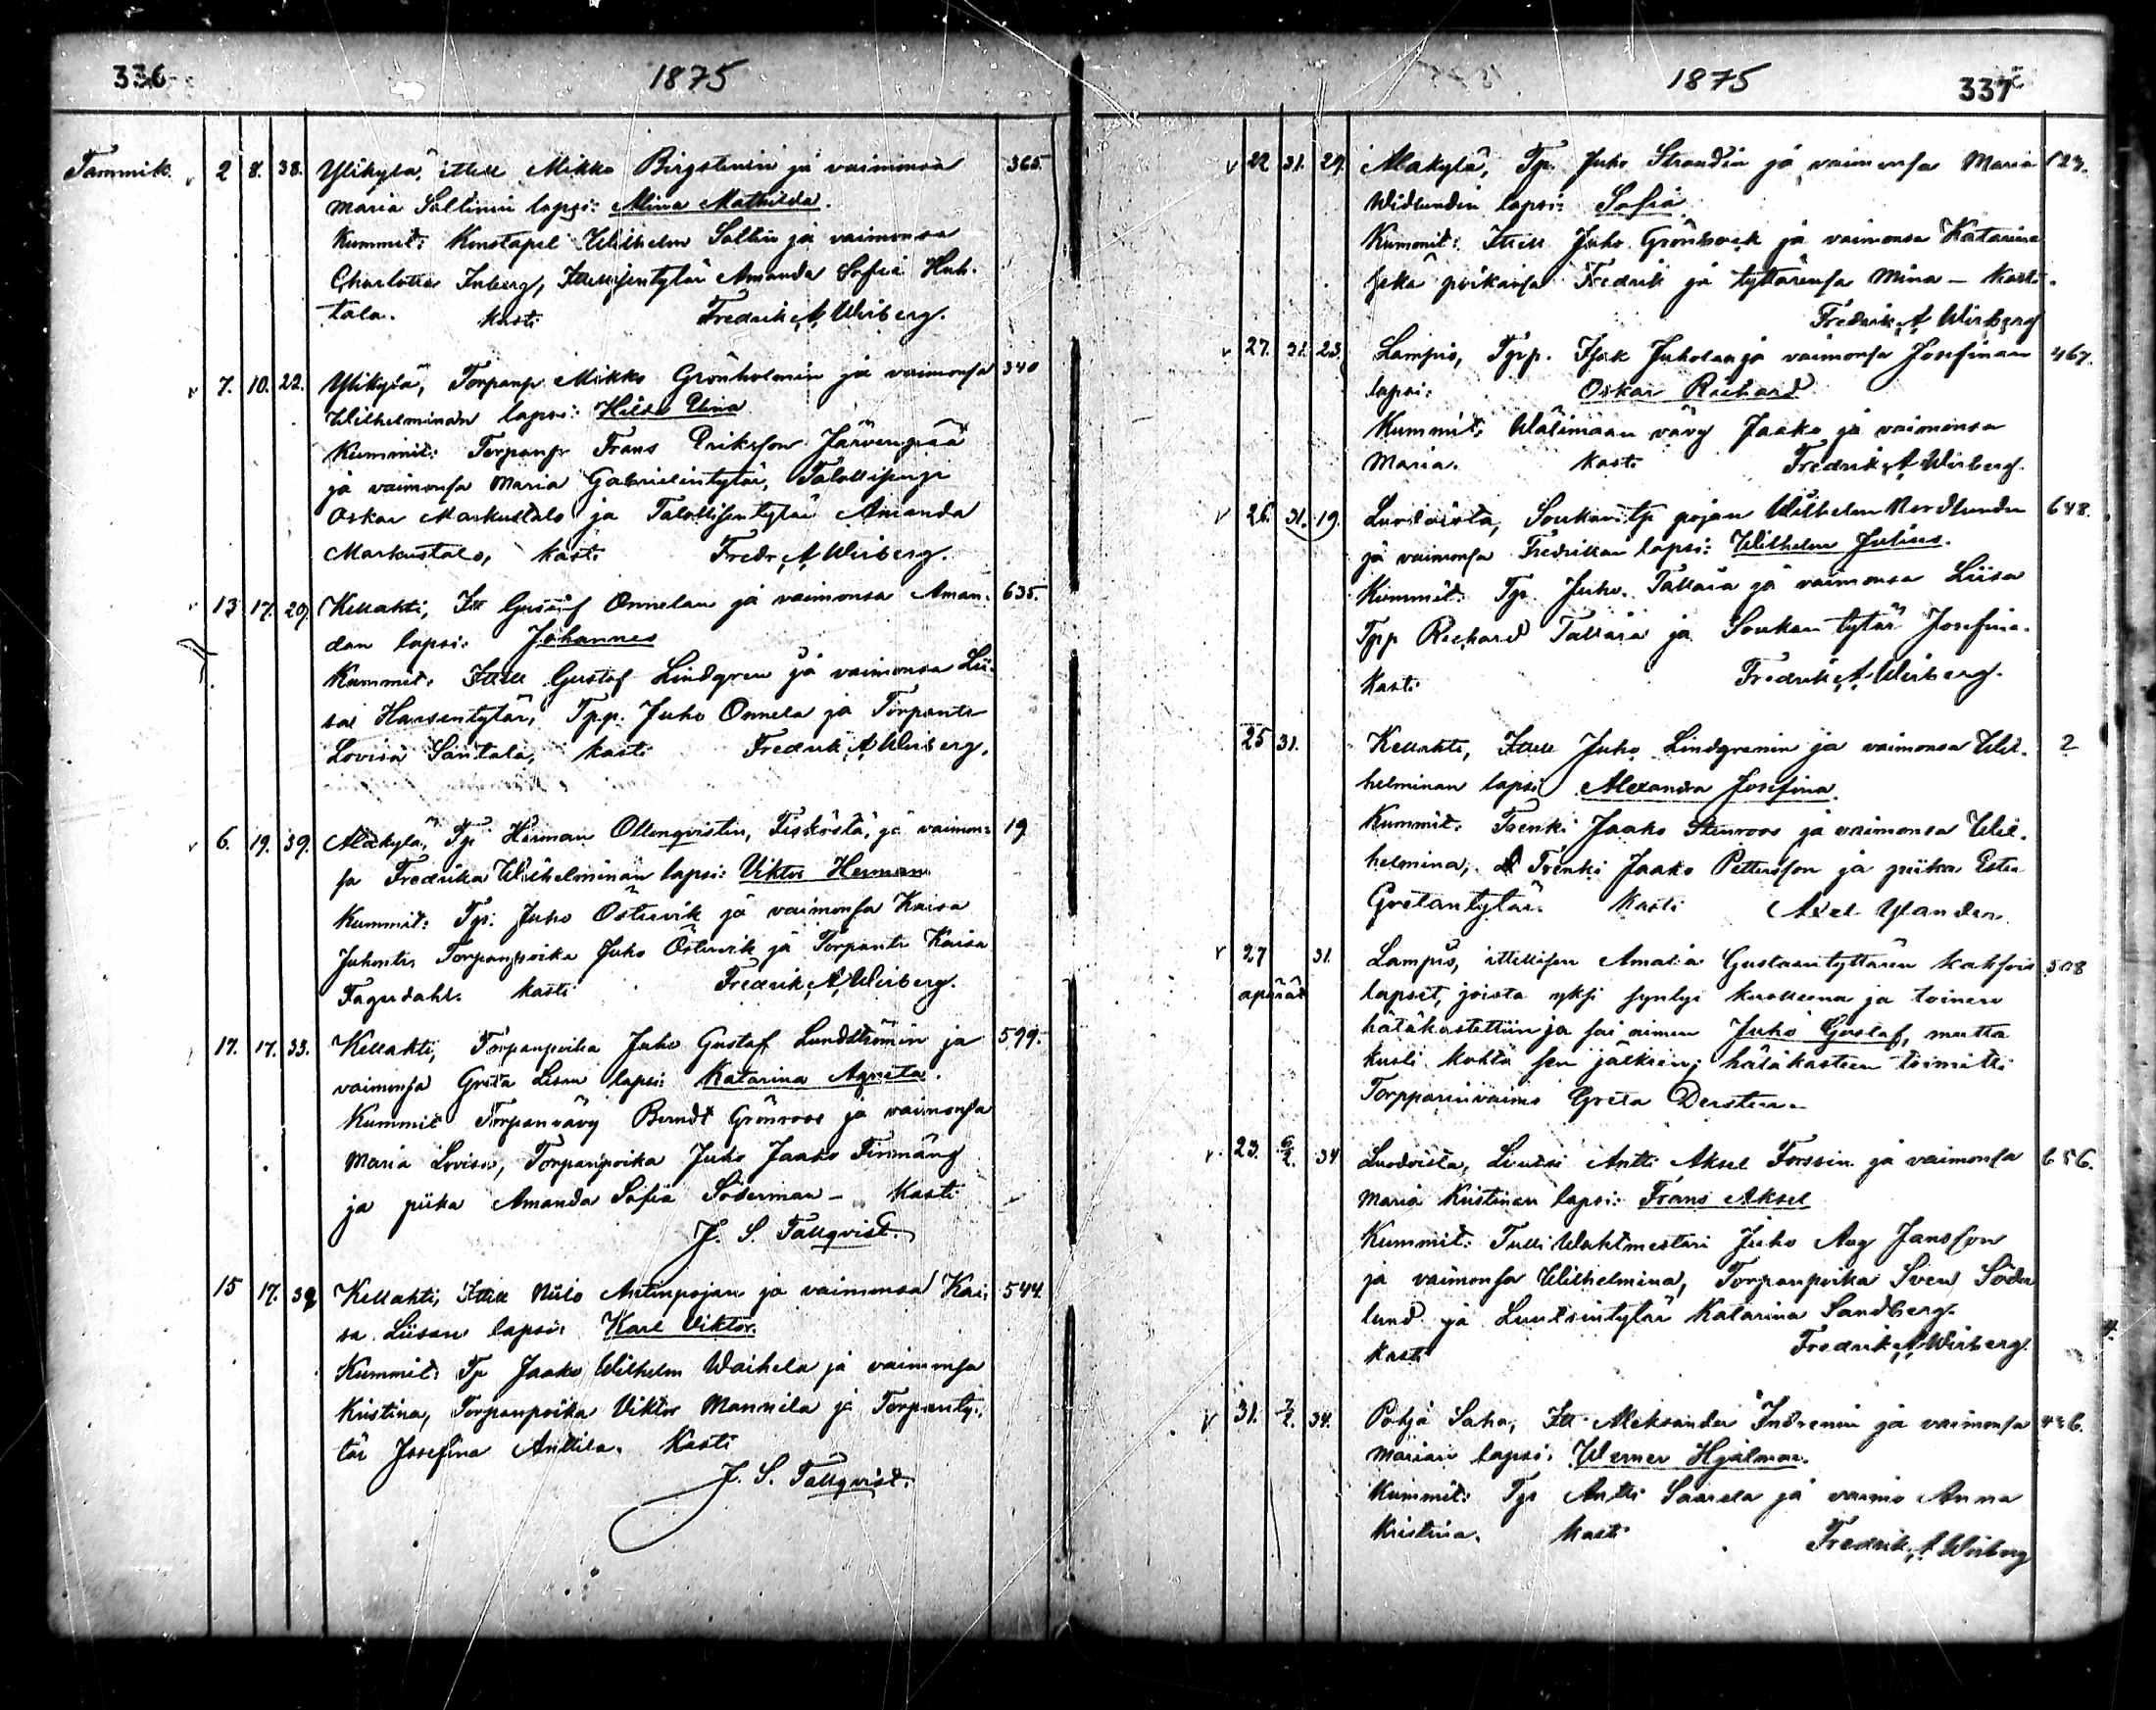 336 1875
Tammik. 2 8. 38. Ylikylä, ittell Mikko Birgstenin ja vaimonsa 365.
Maria Saltinin lapsi: Mina Mathilda.
Kummit: Konstapel Wilhelm Saltin ja vaimonsa
Charlotta Inberg, Ittellisentytär Amanda Sofia Huh-
tala. kasti Fredrik A Wirberg.
7. 10. 22. Ylikylä, Torpanp. Mikko Grönholmin ja vaimonsa 340
Wilhelminan lapsi: Hilda Elina
Kummit: Torpanp Frans Eriksson Järvenpää
ja vaimonsa Maria Gabrielintytär, Talollisenp
Oskar Markustalo ja Talollisentytär Amanda
Markustalo, kasti Fredr. A Wirberg.
13 17. 29. Kellahti, Itt Gustaf Onnelan ja vaimonsa Aman- 635.
dan lapsi: Johannes
Kummit: Ittell Gustaf Lindgren ja vaimonsa Lii-
sa Hansentytär, Tpp. Juho Onnela ja Torpantr
Lovisa Santala, kasti Fredrik A Wirberg.
6. 19. 39. Alakylä, Tp: Herman Ollonqvistin, ja vaimon- 19
sa Fredrika Wilhelminan lapsi: Viktor Herman
Kummit: Tp: Juho Östervik ja vaimonsa Kaisa
Juhontr, Torpanpoika Juho Östervik ja Torpantr Kaisa
Fagerdahl. kasti Fredrik A Wirberg.
17. 17. 33. Kellahti, Torpanpoika Juho Gustaf Lundströmin ja 599.
vaimonsa Greta Lisan lapsi: Katarina Agneta.
Kummit Torpanvävy Berndt Grönroos ja vaimonsa
Maria Lovisa, Torpanpoika Juho Jaako Finmäng
ja piika Amanda Sofia Söderman - Kasti
J. S. Tallqvist.
15 17. 39 Kellahti, Ittell Niilo Antinpojan ja vaimonsa Kai- 544.
sa Liisan lapsi: Karl Viktor.
Kummit: Tp Jaako Wilhelm Waihela ja vaimonsa
Kristina, Torpanpoika Viktor Mannila ja Torpanty-
tär Josefina Anttila. Kasti
J. S. Tallqvist.
1875 337
22 31. 29. Alakylä, Tp. Juho Strandin ja vaimonsa Maria 123.
Widlundin lapsi: Sofia
Kummit: Ittell Juho Grönback ja vaimonsa Katarina
sekä poikansa Fredrik ja tyttärensa Mina - kasti.
Fredrik A Wirberg
27. 31. 23. Lampis, Tpp. Isak Juholan ja vaimonsa Josefinan 467.
lapsi: Oskar Richard
Kummit: Wälimaan vävy Jaako ja vaimonsa
Maria. kasti Fredrik A Wirberg.
26. 31. 19. Luvdoista, Soukan tp pojan Wilhelm Nordlundin 648.
ja vaimonsa Fredrikan lapsi: Wilhelm Julius.
Kummit: Tp. Juho Tallära ja vaimonsa Liisa
Tpp Richard Tallära ja Soukan tytär Josefina.
Kasti Fredrik A Wirberg.
25 31. Kellahti, Ittell Juho Lindgrenin ja vaimonsa Wil- 2
helminan lapsi Alexandra Josefina.
Kummit: Trenki Jaako Stenroos ja vaimonsa Wil-
helmina, Trenki Jaako Pettersson ja piika Ester
Gretantytär. kasti Axel Ylander
27 31. Lampis, ittellisen Amalia Gustaantyttären kaksois 508
apärät lapset, joista yksi syntyi kuolleena ja toinen
hätäkastettiin ja sai nimen Juho Gustaf, mutta
kuoli kohta sen jälkeen; hätäkasteen toimitti
Torpparinvaimo Greta
23. 6/2. 34 Luodoista, Luutsi Antti Aksel Forssin ja vaimonsa 656.
Maria Kristinan lapsi: Frans Aksel
Kummit: Tulli Wahtmestari Juho Aug Jansson
ja vaimonsa Wilhelmina, Torpanpoika Sven Söder
lund ja Luutsintytär Katarina Sandberg.
kasti Fredrik A Wirberg.
31. 7/2. 34. Pohja Saha, Itt Aleksander Indrenin ja vaimonsa 426.
Marian lapsi: Werner Hjalmar.
Kummit: Tp Antti Saarela ja vaimo Anna
Kristina. kasti Fredrik A Wirberg